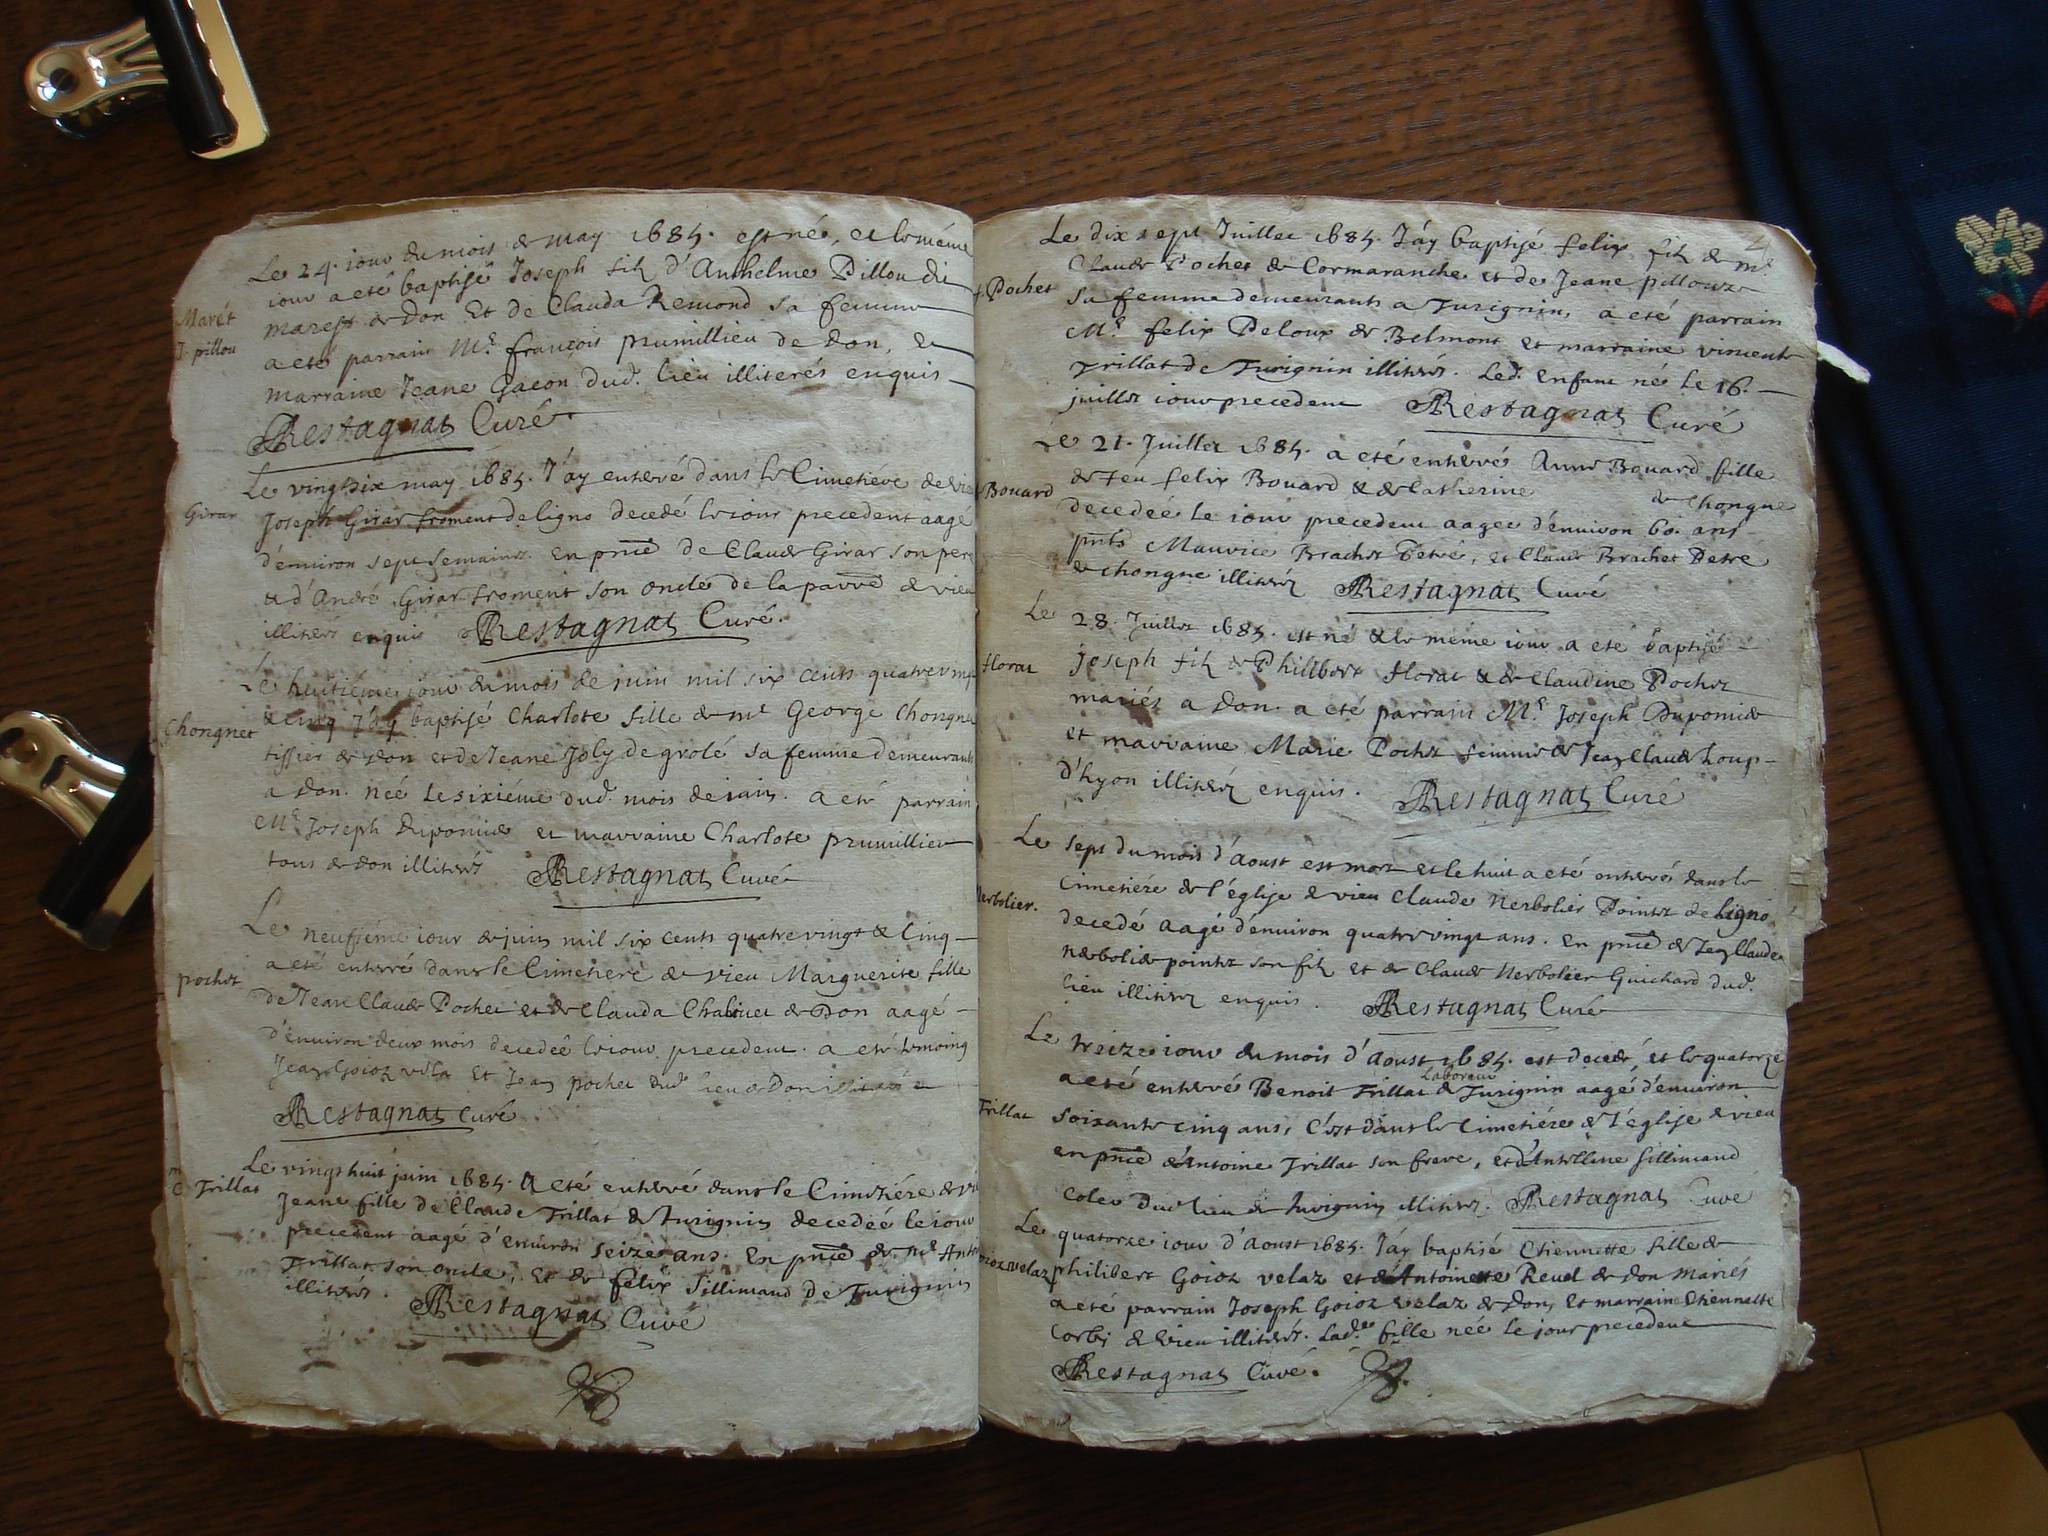 Le 24. iour du mois de may 1685. est né, et le méme
iour a eté baptisé Joseph fils d'Anthelme Pillou dit
Marét
marest de Don Et de Clauda Remond sa femme
J. pillou
a eté parrain Mr. françois prumillieu de Don, et
marraine Jeane Gacon dud. lieu illiterés enquis
Restagnat Curé
Le vingt six may 1685. J'ay enterré dans le Cimetiére de vieu
Girar
Joseph Girar froment de ligno decedé le iour precedent aagé
d'environ sept semaines. en pnce de Claude Girar son pere
et d'André Girar froment son oncle de la parre de vieu
illiterés enquis Restagnat Curé.
Le huitiéme iour du mois de juin mil six cents quatre vingt
Chongnet
& cinq J'ay baptisé Charlote fille de me George Chongnet
tissier de Don et de Jeane Joly de grolé sa femme demeurants
a Don. née le sixiéme dud. mois de iuin. a eté parrain
Mr. Joseph Dupomier et marraine Charlote prumillieu
tous de Don illiterés Restagnat Curé
Le neufiéme iour de juin mil six cents quatre vingt & Cinq
a eté enterré dans le Cimetiere de vieu Marguerite fille
pochet
de Jean Claude Pochet et de Clauda Chaluet de Don aagé
d'environ deux mois decedeé le iour precedent. a eté temoing
Jean Goioz vela et Jean pochet dud. lieu de Don illiterés
Restagnat curé
Le vingt huit juin 1685. a eté enterré dans le Cimetiére de vieu
Trillat
Jeane fille de Claude Trillat de Turignin decedeé le iour
precedent aagé d'environ seize ans. en pnce de me Antoine
Trillat son oncle, Et de felix Sillimand de Turignin
illiterés. Restagnat Curé
Le dix sept Juillet 1685. J'áy baptisé felix fils de me
f. Pochet
Claude Pochet de Cormaranche et de Jeane pillouz
sa femme demeurants a Turignin, a eté parrain
Mr. felix Deloux de Belmont et marraine vincente
Trillat de Turignin illiterés. Led. enfant né le 16.
juillet iour precedent Restagnat Curé
Le 21. Juillet 1685. a eté enterré Anne Bouard fille
Bouard
de feu felix Bouard & de Catherine de Chongne
decedeé le iour precedent aageé d'environ 60. ans
pnts Maurice Brachet Detré, et Claude Brachet Detre
de chongne illiterés Restagnat Curé
Le 28. Juillet 1685. est né & le méme iour a eté baptisé
florat
Joseph fils de Philibert florat & de Claudine Pochet
mariés a Don. a eté parrain Mr. Joseph Dupomier
et marraine Marie Pochet femme de Jean Claude Loup
d'hyon illiterés enquis. Restagnat Curé
Le sept du mois d'aoust est mort et le huit a eté enterré dans le
Nerbolier.
Cimetiére de l'église de vieu Claude Nerbolier Pointet de ligno
decedé aagé d'environ quatre vingt ans. en pnce de Jean Claude
Nerbolier pointet son fils et de Claude Nerbolier Guichard dud.
lieu illiterés enquis. Restagnat Curé
Le treize iour du mois d'aoust 1685. est decedé, et le quatorze
Laboreur
a eté enterré Benoit Trillat de Turignin aagé d'environ
Trillat
soixante cinq ans, C'est dans le Cimetiére de l'église de vieu
en pnce d'Antoine Trillat son frere, et d'Anthelme Sillimand
Colex dud. lieu de Turignin illiterés. Restagnat Curé
Le quatorze iour d'Aoust 1685. J'ay baptisé Etiennette fille de
Goioz velaz
philibert Goioz velaz et d'Antoinette Revel de Don Mariés
a eté parrain Joseph Goioz velaz de Don, Et marraine Etiennette
Corbi de vieu illiterés. Lade. fille née le jour precedent
Restagnat Curé.